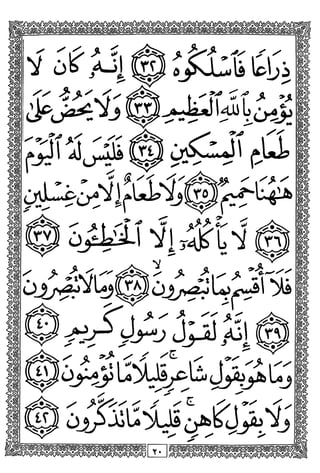 ذِرَاعًا فَٱسْلُكُوهُ ٣٢ إِنَّهُۥ كَانَ لَا
يُؤْمِنُ بِٱللَّهِ ٱلْعَظِيمِ ٣٣ وَلَا يَحُضُّ عَلَىٰ
طَعَامِ ٱلْمِسْكِينِ ٣٤ فَلَيْسَ لَهُ ٱلْيَوْمَ
هَـٰهُنَا حَمِيمٌ ٣٥ وَلَا طَعَامٌ إِلَّا مِنْ غِسْلِينٍ
٣٦ لَّا يَأْكُلُهُۥٓ إِلَّا ٱلْخَـٰطِـُٔونَ ٣٧
فَلَآ أُقْسِمُ بِمَا تُبْصِرُونَ ٣٨ وَمَا لَا تُبْصِرُونَ
٣٩ إِنَّهُۥ لَقَوْلُ رَسُولٍ كَرِيمٍ ٤٠
وَمَا هُوَ بِقَوْلِ شَاعِرٍ ۚ قَلِيلًا مَّا تُؤْمِنُونَ ٤١
وَلَا بِقَوْلِ كَاهِنٍ ۚ قَلِيلًا مَّا تَذَكَّرُونَ ٤٢
٢٠